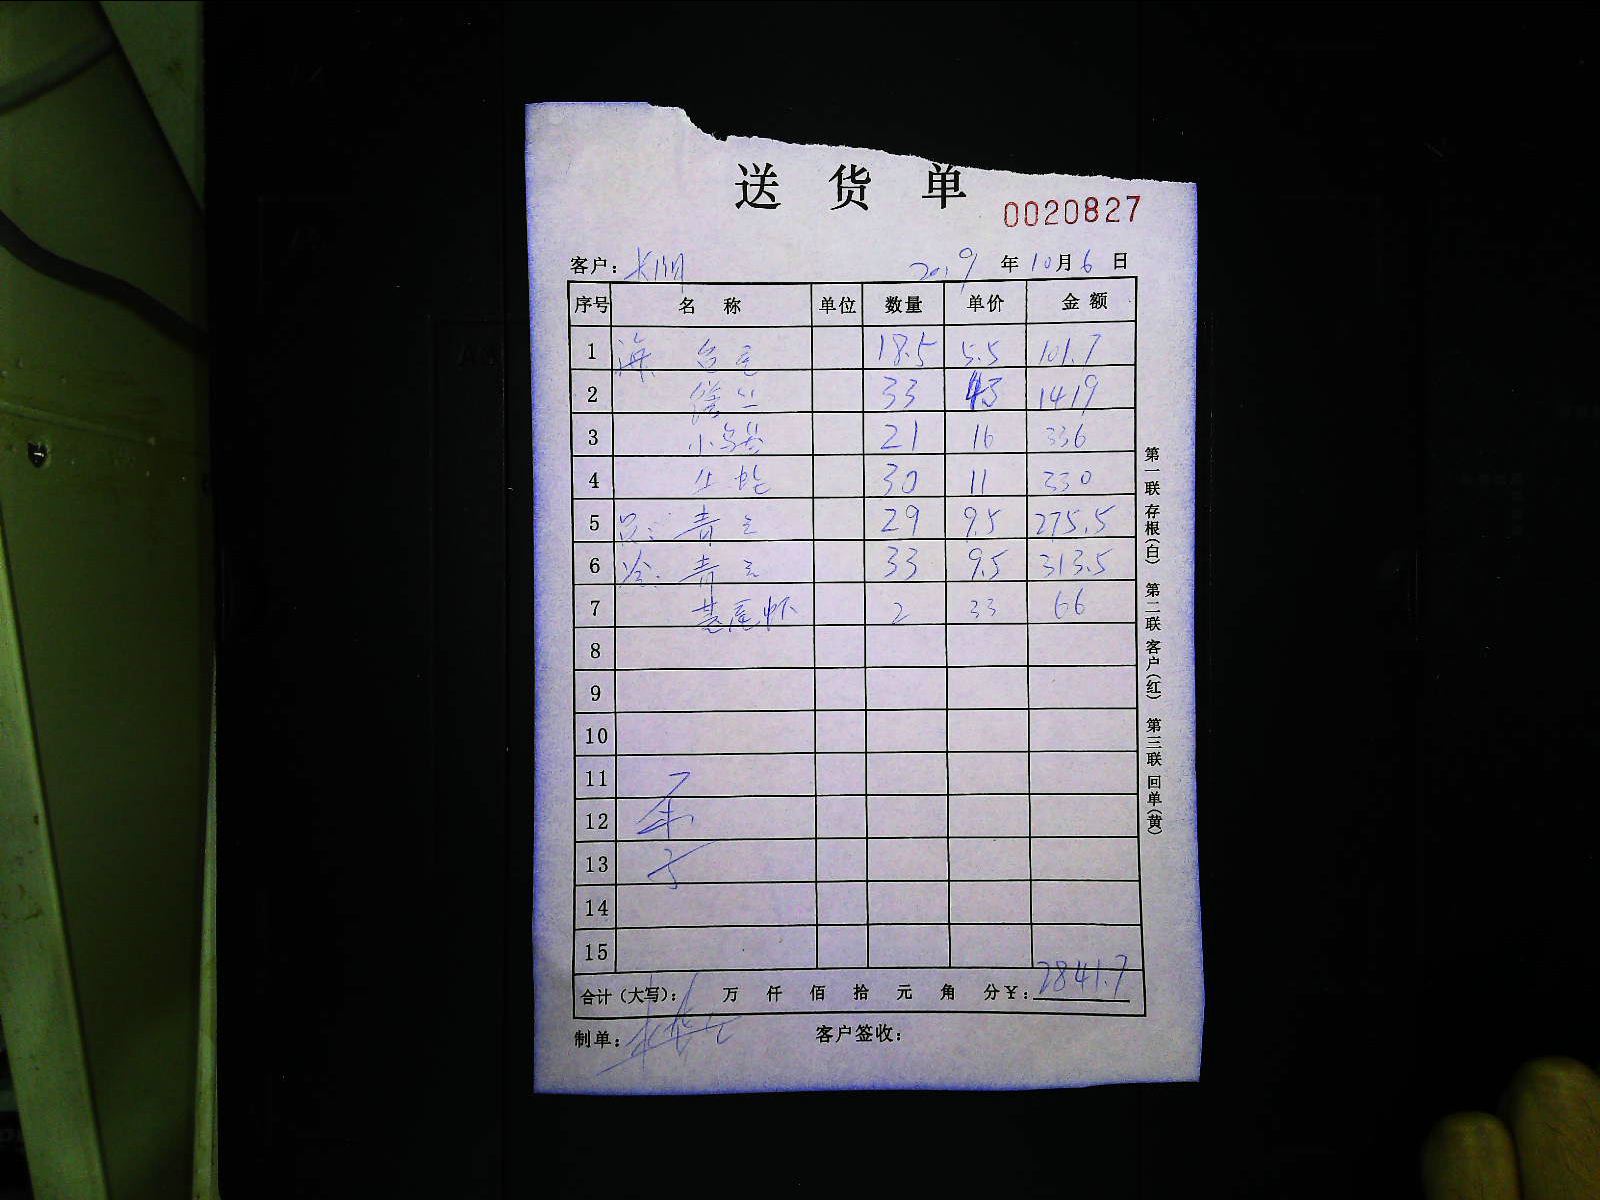 送 货 单
0020827
客户: 2019 年 10 月 6 日
序号 名 称 单位 数量 单价 金 额
1 海 18.5 5.5 101.7
2 33 43 1419
3 小乌 21 16 336
4 30 11 330
5 青 29 9.5 275.5
6 冷: 青 33 9.5 313.5
7 基尾虾 2 33 66
8
9
10
11
12
13
14
15
合计(大写): 万 仟 佰 拾 元 角 分 ¥: 2841.7
制单: 客户签收:
第一联 存根(白) 第二联 客户(红) 第三联 回单(黄)